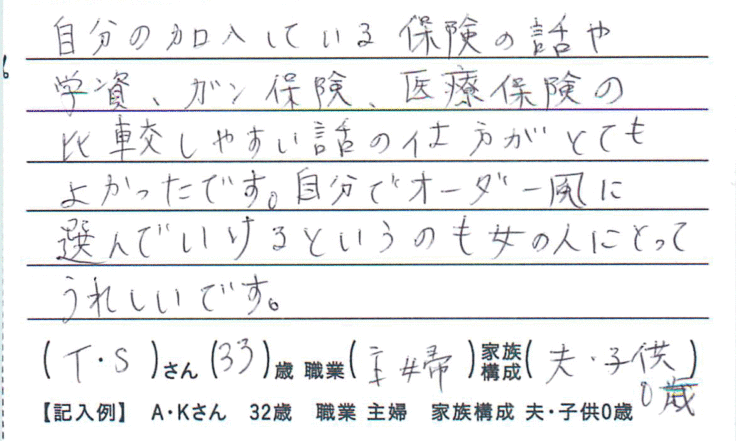 自分の加入している保険の話や
学資、ガン保険、医療保険の
比較しやすい話の仕方がとても
よかったです。自分でオーダー風に
選んでいけるというのも女の人にとって
うれしいです。
(T・S)さん(33)歳 職業(主婦)家族構成(夫・子供0歳)
【記入例】 A・Kさん 32歳 職業 主婦 家族構成 夫・子供0歳